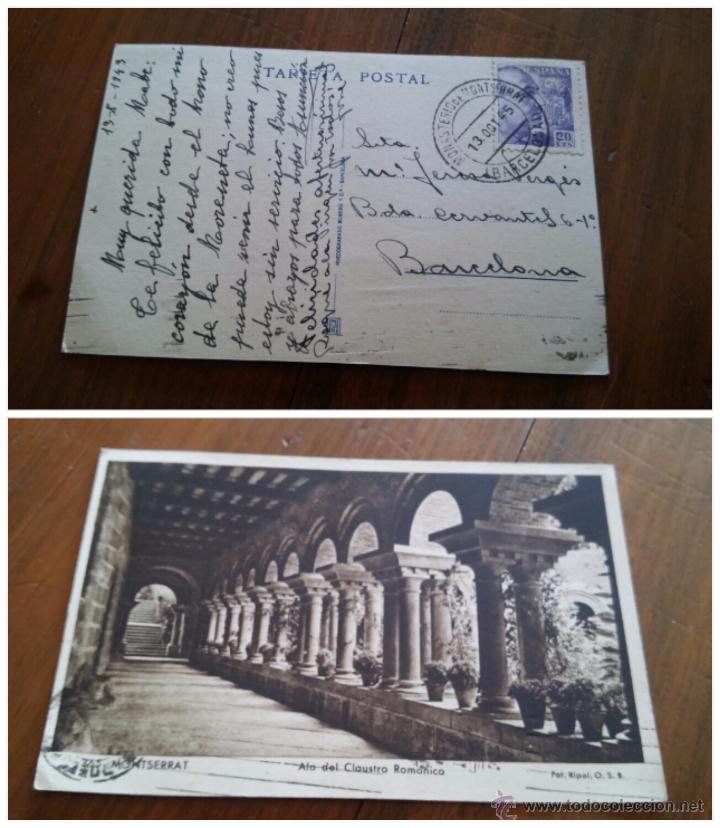 TARJETA POSTAL
13-X-1943
Muy querida Mabe:
Te felicito con todo mi
corazón desde el trono
de la Moreneta; no creo
pueda venir el lunes pues
estoy sin servicio. Besos
y abrazos para todos
HUECOGRABADO MUMBRÚ Y Cª - BARCELONA
ESPAÑA
20
CTS
MONASTERIO DE MONTSERRAT
13 OCT 45
(BARCELONA)
Srta.
Mª Teresa Vergés
Bda. Cervantes 6-1º
Barcelona
MONTSERRAT
Ala del Claustro Románico
Fot. Ripol, O. S. B.
www.todocoleccion.net